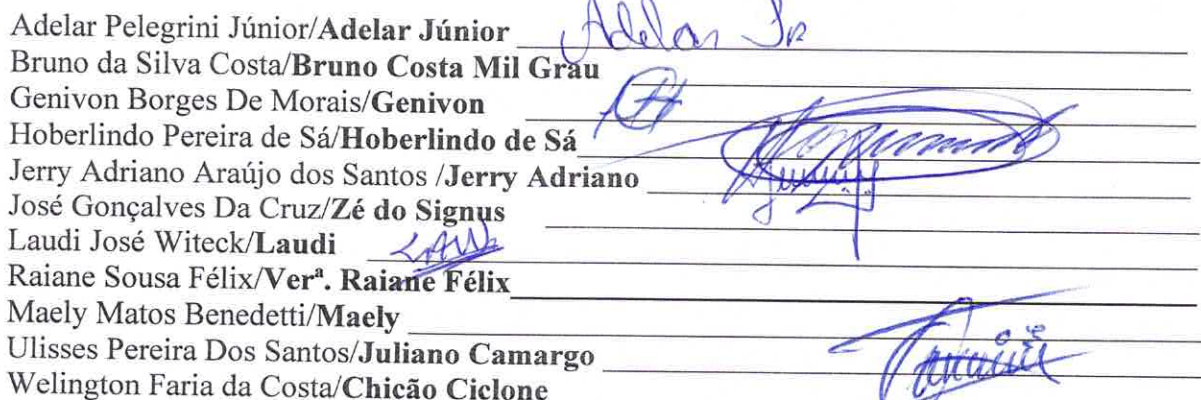 Adelar Pelegrini Júnior/Adelar Júnior Adelar Jr
Bruno da Silva Costa/Bruno Costa Mil Grau
Genivon Borges De Morais/Genivon
Hoberlindo Pereira de Sá/Hoberlindo de Sá
Jerry Adriano Araújo dos Santos /Jerry Adriano
José Gonçalves Da Cruz/Zé do Signus
Laudi José Witeck/Laudi
Raiane Sousa Félix/Verª. Raiane Félix
Maely Matos Benedetti/Maely
Ulisses Pereira Dos Santos/Juliano Camargo
Welington Faria da Costa/Chicão Ciclone